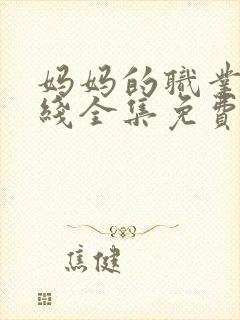 妈妈的職業
綫全集免費
焦健